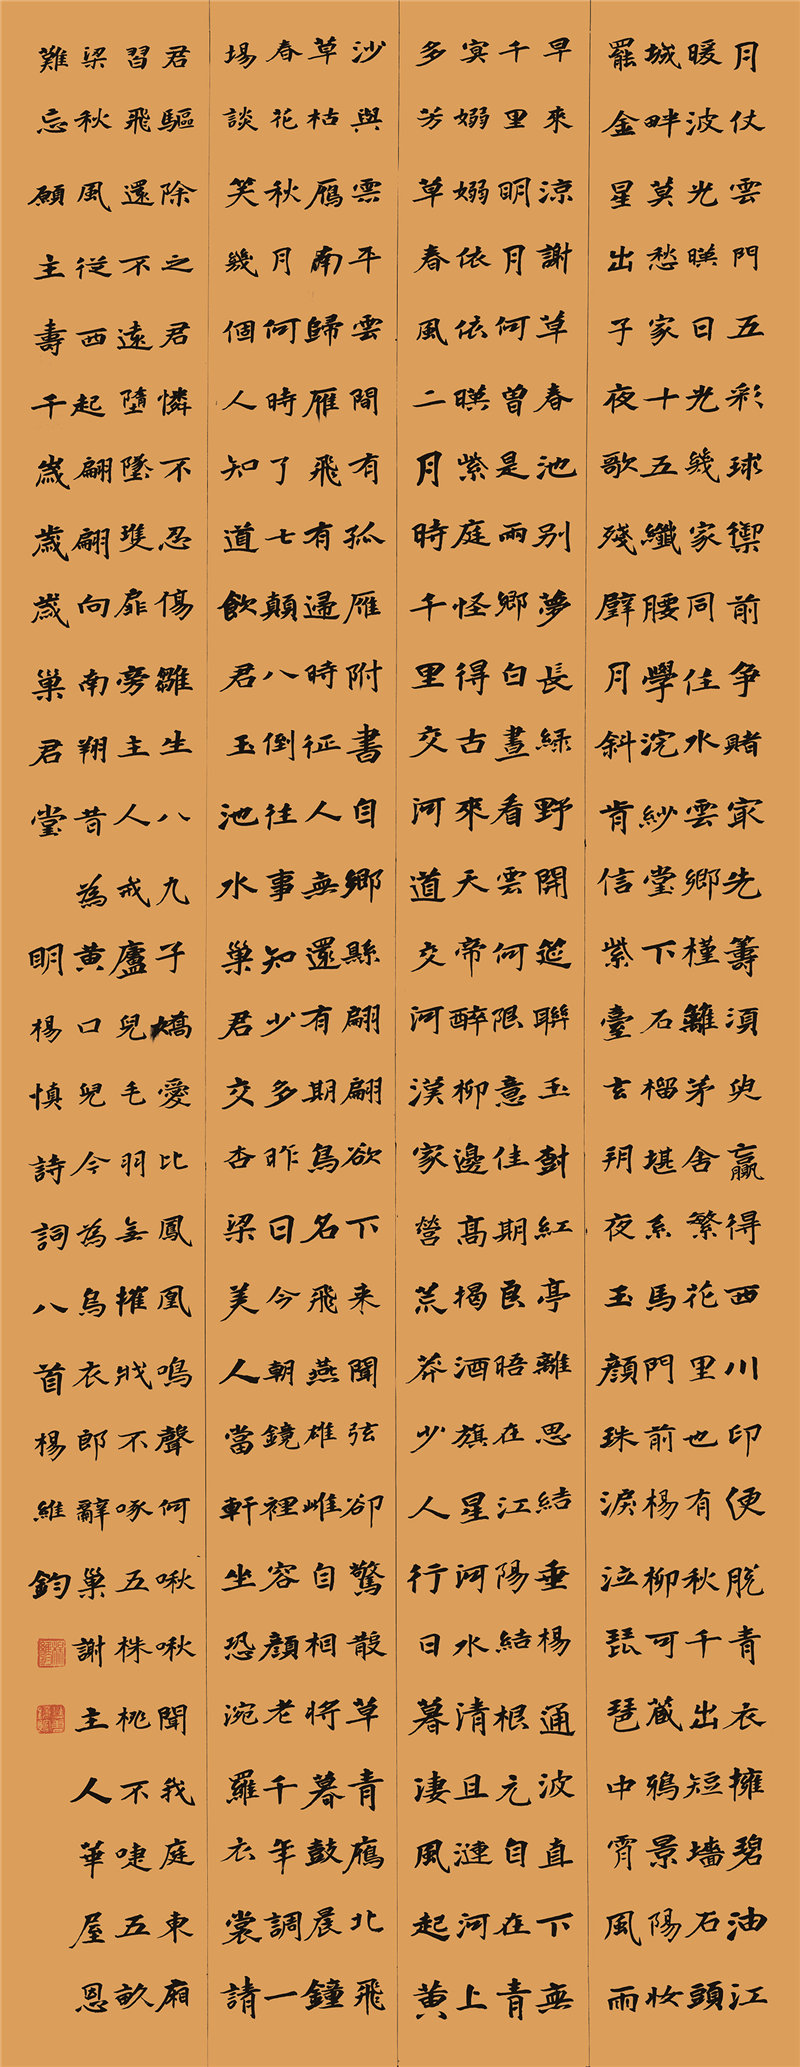 月仗雲門五彩球禦前争賭冣先籌須臾贏得西川印便脫青衣擁碧油江
暖波光暎日光幾家同住水雲鄉槿籬茅舍繁花里也有秋千出短墻石頭
城畔莫愁家十五纖腰學浣紗堂下石榴堪系馬門前楊柳可藏鴉景陽妝
罷金星出子夜歌殘壁月斜肯信紫臺玄朔夜玉顏珠淚泣琵琶中宵風雨
早來涼謝草春池别夢長綠野開筵聯玉對紅亭離思結垂楊通波直下無
千里明月何曾是兩鄉白晝看雲何限意佳期良晤在江陽結根元自在青
冥嫋嫋依依暎紫庭怪得古來天帝醉柳邊高揭酒旗星河水清且漣河上
多芳草春風二月時千里交河道交河漢家營荒莽少人行日暮淒風起黃
沙與雲平雲間有孤雁附書自鄉縣翩翩欲下来聞弦卻驚散草青鴈北飛
草枯鴈南歸雁飛有歸時征人無還有期鳥名飛燕雄雌自相將暮鼓晨鐘
春花秋月何時了七顛八倒往事知少多昨日今朝鏡裡容顏老千年調一
場談笑幾個人知道飲君玉池水巢君交杏梁美人當軒坐恐涴羅衣裳請
君驅除之君憐不忍傷雛生八九子嬌愛比鳳凰鳴聲何啾啾聞我庭東廂
習飛還不遠墮墜雙扉旁主人戒廬兒毛羽無摧戕不啄五株桃不唼五畝
梁秋風從西起翩翩向南翔昔為黃口兒今為烏衣郎辭巢謝主人華屋恩
難忘願主壽千歲歲歲巢君堂 明楊慎詩詞八首楊維鈞